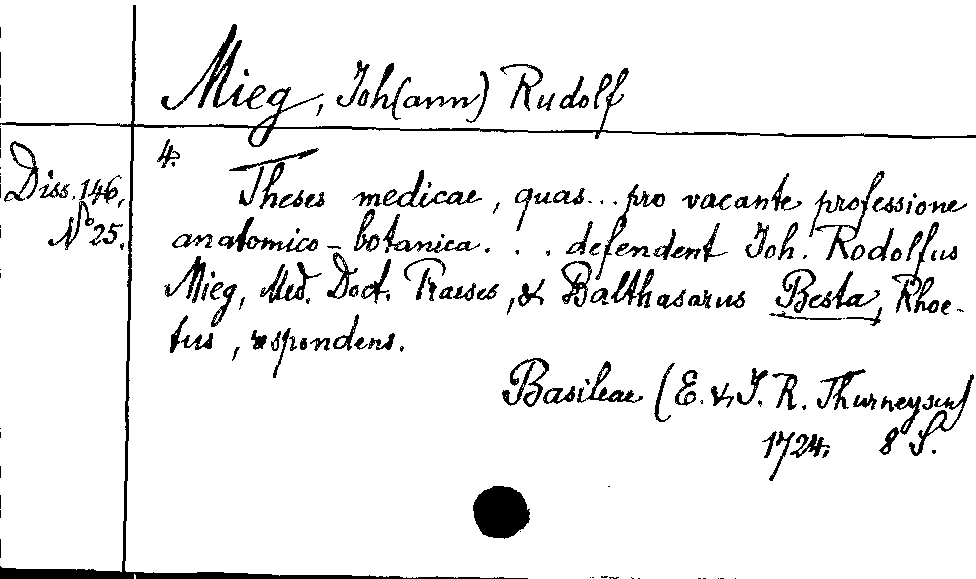 Mieg, Joh(ann) Rudolf
Diss. 146,
No 25.
4.
Theses medicae, quas... pro vacante professione
anatomico-botanica. . . defendent Joh. Rodolfus
Mieg, Med. Doct. Praeses, & Balthasarus Besta, Rhoe-
tus, respondens.
Basileae (E. & J. R. Thurneysen)
1724. 8 S.